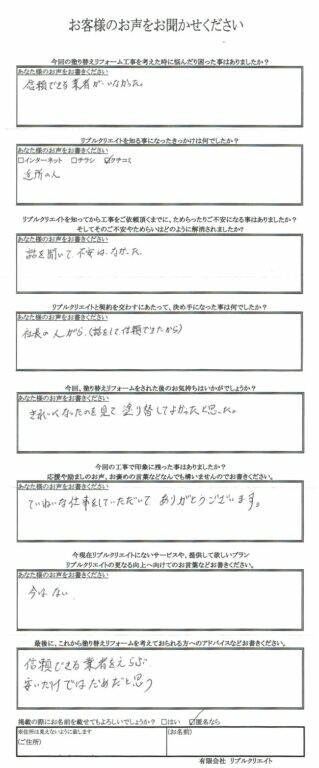 お客様のお声をお聞かせください
今回の塗り替えリフォーム工事を考えた時に悩んだり困った事はありましたか?
あなた様のお声をお書きください
信頼できる業者がいなかった。
リプルクリエイトを知る事になったきっかけは何でしたか?
あなた様のお声をお書きください
□インターネット □チラシ ☑クチコミ
近所の人
リプルクリエイトを知ってから工事をご依頼頂くまでに、ためらったりご不安になる事はありましたか?
そしてそのご不安やためらいはどのように解消されましたか?
あなた様のお声をお書きください
話を聞いて不安はなかった。
リプルクリエイトと契約を交わすにあたって、決め手になった事は何でしたか?
あなた様のお声をお書きください
社長の人がら、(話をして信頼できたから)
今回、塗り替えリフォームをされた後のお気持ちはいかがでしょうか?
あなた様のお声をお書きください
きれいになったのを見て塗り替してよかったと思った。
今回の工事で印象に残った事はありますか?
応援や励ましのお声、お褒めの言葉などなんでも構いませんのでお書きください。
あなた様のお声をお書きください
ていねいな仕事をしていただいてありがとうございます。
今現在リプルクリエイトにないサービスや、提供して欲しいプラン
リプルクリエイトの更なる向上へ向けてのお言葉などお書きください。
あなた様のお声をお書きください
今はない
最後に、これから塗り替えリフォームを考えておられる方へのアドバイスなどお書きください。
あなた様のお声をお書きください
信頼できる業者をえらぶ
安いだけではだめだと思う
掲載の際にお名前を載せてもよろしいでしょうか? □はい ☑匿名なら
※住所は見えないように致します
(ご住所)
(お名前)
有限会社 リプルクリエイト